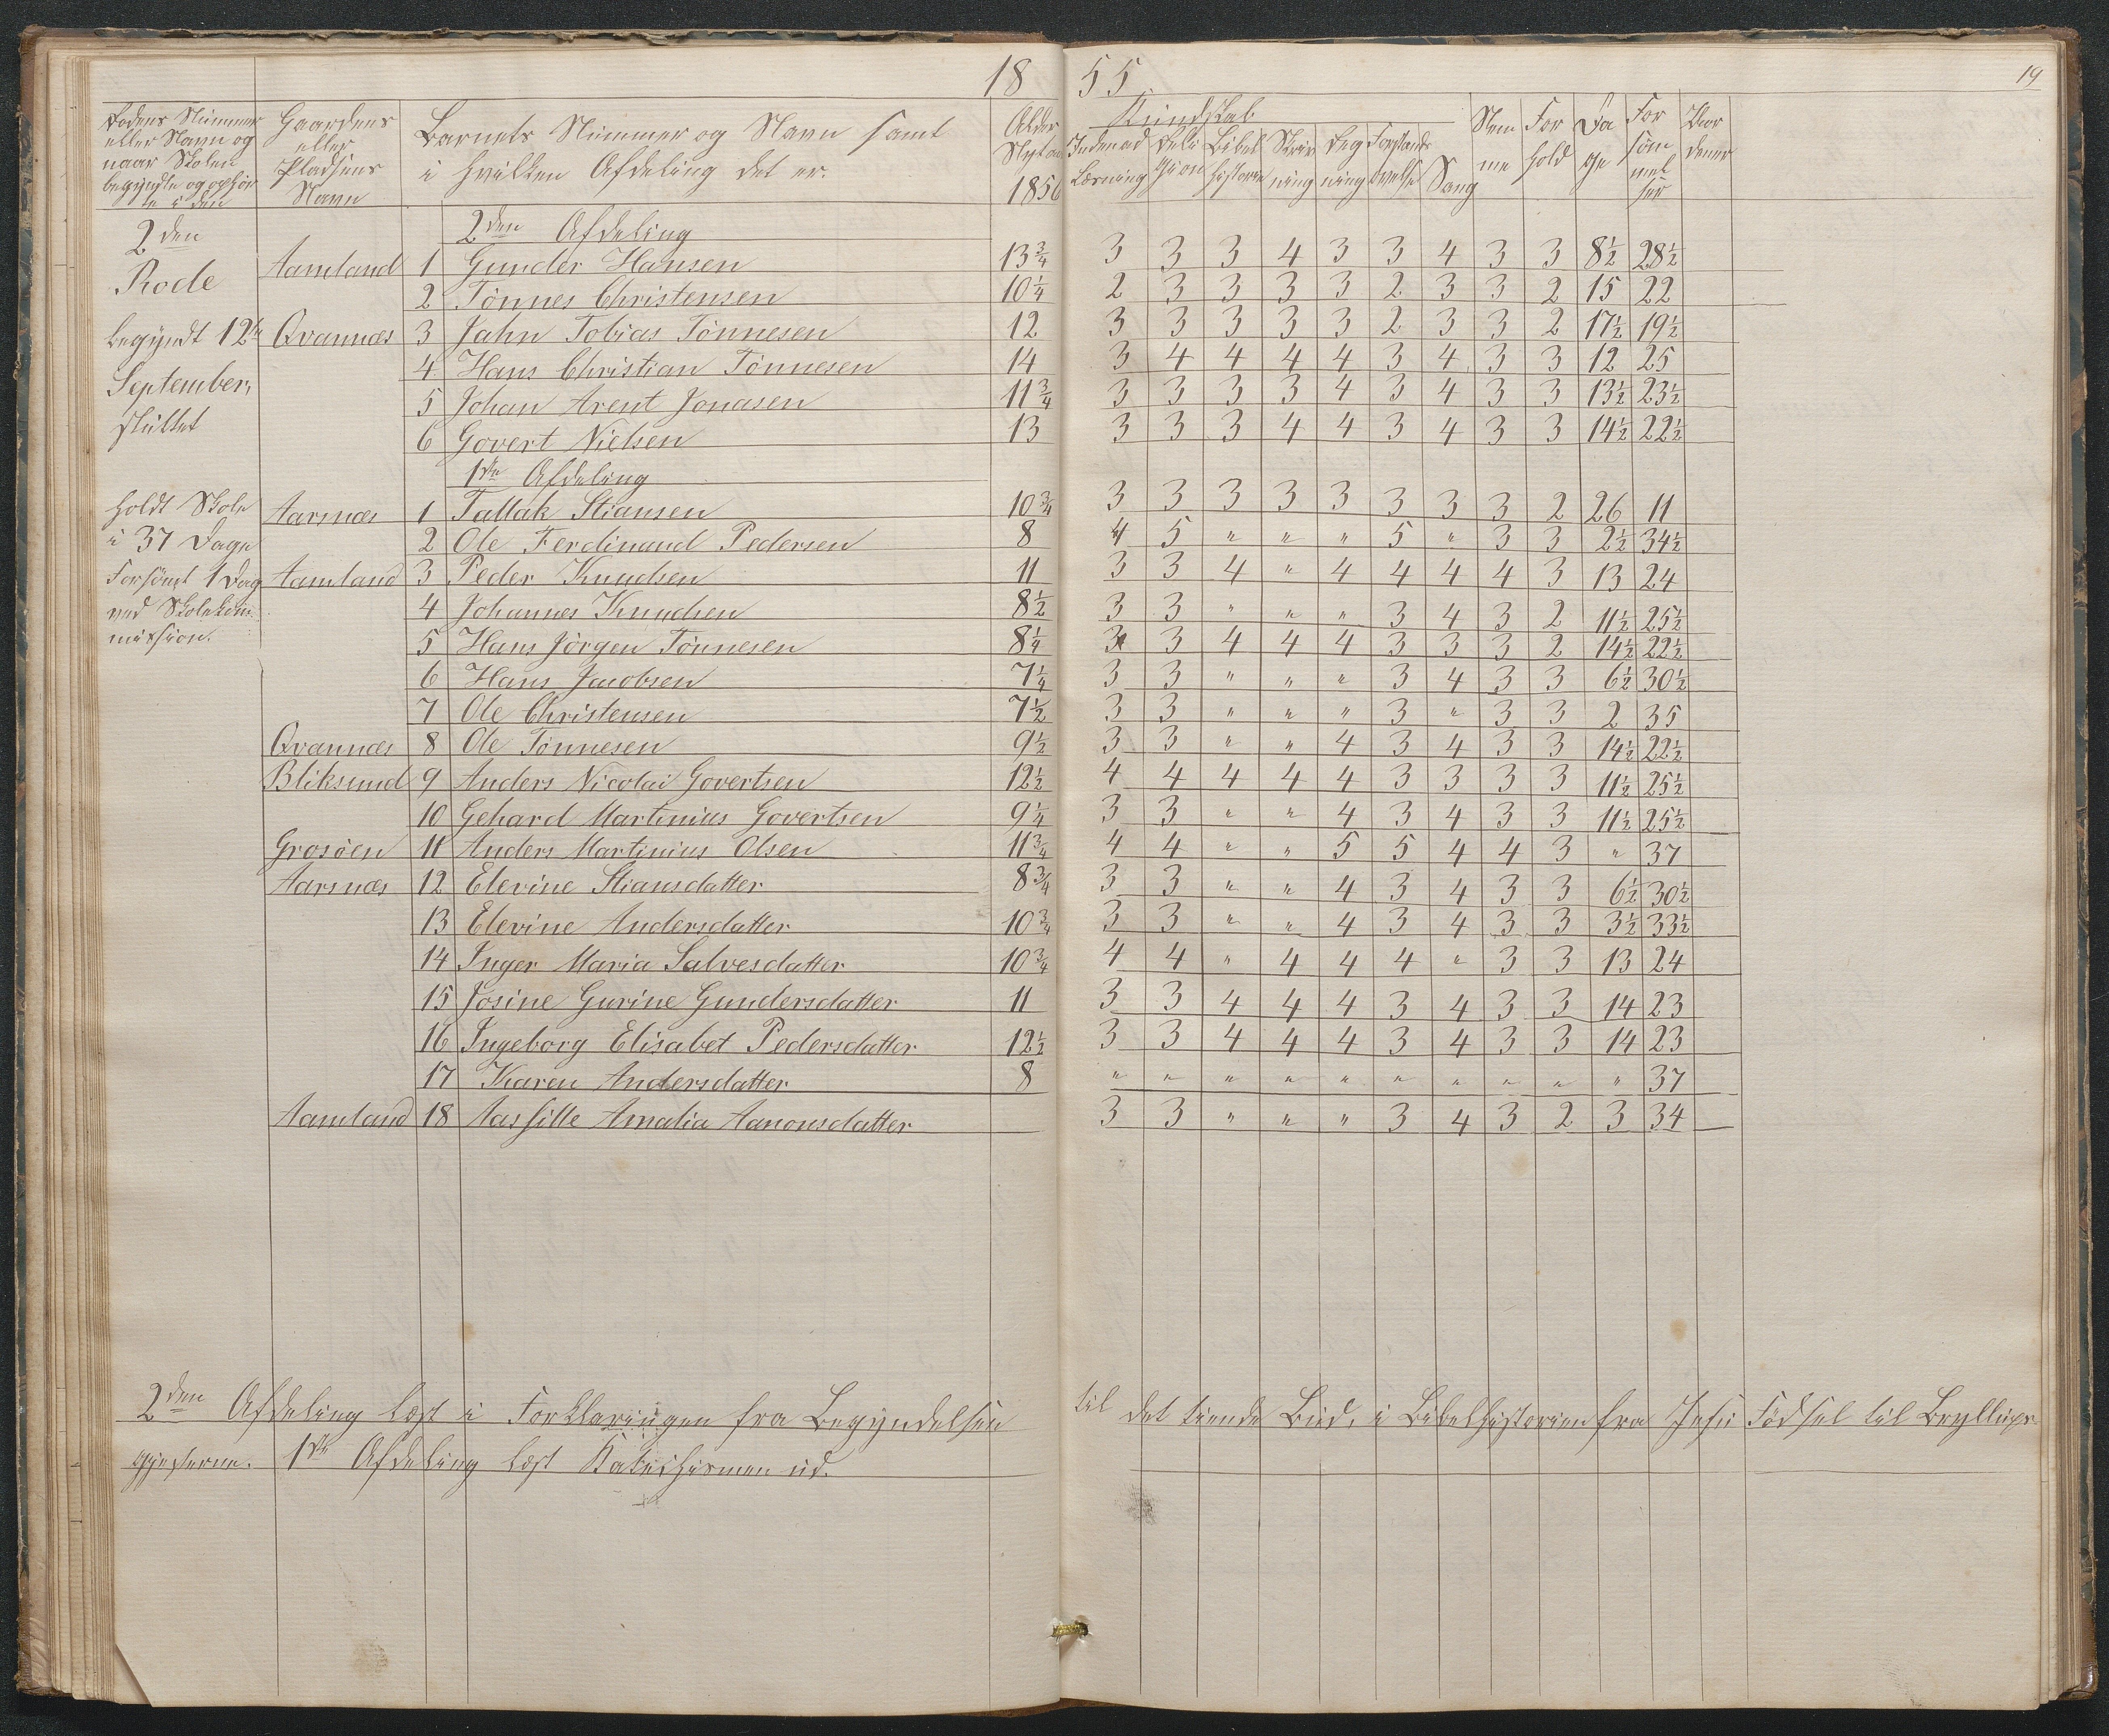 18 55
19
Rodens Nummer eller Navn og naar Skolen begyndte og ophør te i den
Gaardens eller Pladsens Navn
Barnets Nummer og Navn samt
i hvilken Afdeling det er.
Alder Nytaar 1856
Kundskab
Indenad Læsning
Reli gion
Bibel historie
Skriv ning
Reg ning
Forstands øvelse
Sang
Nem me
For hold
Da ge
For søm mel ser
Vor dener
2den Afdeling
2den Rode
Aamland 1 Gunder Hansen 13 3/4 3 3 3 4 3 3 4 3 3 8 1/2 28 1/2
2 Tönnes Christensen 10 1/4 2 3 3 3 3 2 3 3 2 15 22
begyndt 12te
Qvannæs 3 Jahn Tobias Tönnesen 12 3 3 3 3 3 2 3 3 2 17 1/2 19 1/2
4 Hans Christian Tönnesen 14 3 4 4 4 4 3 4 3 3 12 25
September,
5 Johan Arent Jonasen 11 3/4 3 3 3 3 4 3 4 3 3 13 1/2 23 1/2
sluttet
6 Govert Nielsen 13 3 3 3 4 4 3 4 3 3 14 1/2 22 1/2
1ste Afdeling
holdt Skole
Aarsnæs 1 Tallak Stiansen 10 3/4 3 3 3 3 3 3 3 3 2 26 11
i 37 Dage
2 Ole Ferdinand Pedersen 8 4 5 " " " 5 " 3 3 2 1/2 34 1/2
Forsömt 1 Dag
Aamland 3 Peder Knudsen 11 3 3 4 " 4 4 4 4 3 13 24
ved Skolekom
4 Johannes Knudsen 8 1/2 3 3 " " " 3 4 3 2 11 1/2 25 1/2
mission.
5 Hans Jörgen Tönnesen 8 1/4 3 3 4 4 4 3 3 3 2 14 1/2 22 1/2
6 Hans Jacobsen 7 1/4 3 3 " " " 3 4 3 3 6 1/2 30 1/2
7 Ole Christensen 7 1/2 3 3 " " " 3 " 3 3 2 35
Qvannæs 8 Ole Tönnesen 9 1/2 3 3 " " 4 3 4 3 3 14 1/2 22 1/2
Bliksund 9 Anders Nicolai Govertsen 12 1/2 4 4 4 4 4 3 3 3 3 11 1/2 25 1/2
10 Gehard Martinius Govertsen 9 1/4 3 3 " " 4 3 4 3 3 11 1/2 25 1/2
Grosöen 11 Anders Martinius Olsen 11 3/4 4 4 " " 5 5 4 4 3 " 37
Aarsnæs 12 Elevine Stiansdatter 8 3/4 3 3 " " 4 3 4 3 3 6 1/2 30 1/2
13 Elevine Andersdatter 10 3/4 3 3 " " 4 3 4 3 3 3 1/2 33 1/2
14 Inger Maria Salvesdatter 10 3/4 4 4 " 4 4 4 " 3 3 13 24
15 Josine Gurine Gundersdatter 11 3 3 4 4 4 3 4 3 3 14 23
16 Ingeborg Elisabet Pedersdatter 12 1/2 3 3 4 4 4 3 4 3 3 14 23
17 Karen Andersdatter 8 " " " " " " " " " " 37
Aamland 18 Aassille Amalia Aanonsdatter 3 3 " " " 3 4 3 2 3 34
2den Afdeling læst i Forklaringen fra Begyndelsen til det tiende Bud, i Bibelhistorien fra Jesu Födsel til Bryllups
gjesterne. 1ste Afdeling læst Katechismen ud.